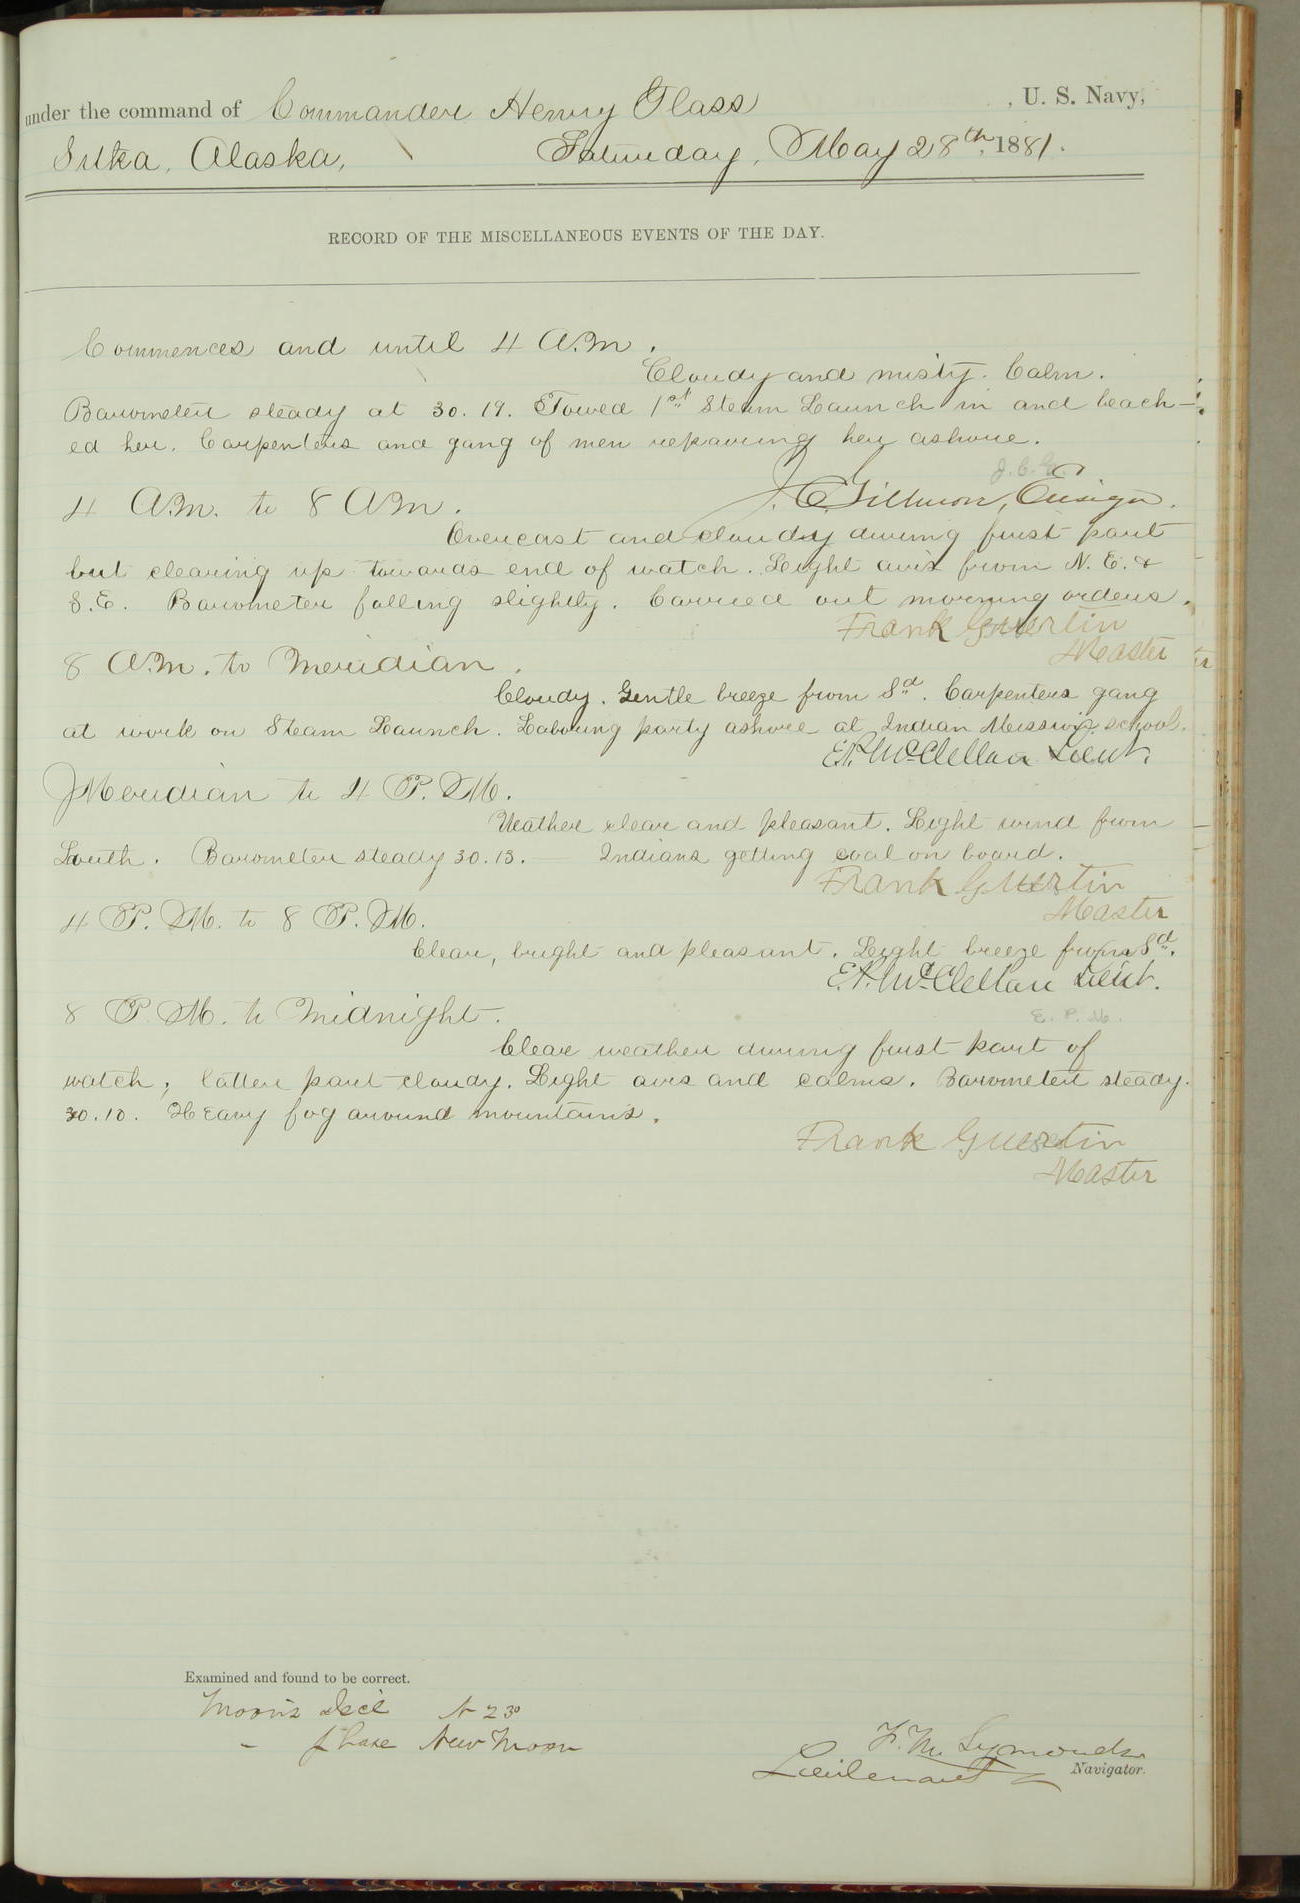 under the command of Commander Henry Glass , U. S. Navy,
Sitka, Alaska, Saturday, May 28th, 1881.
RECORD OF THE MISCELLANEOUS EVENTS OF THE DAY.
Commences and until 4 A.M.
Cloudy and misty. Calm.
Barometer steady at 30.19. Towed 1st Steam Launch in and beach-
ed her. Carpenters and gang of men repairing her ashore.
J.C.G.
4 A.M. to 8 A.M. J. C. Gillmore, Ensign.
Overcast and cloudy during first part
but clearing up towards end of watch. Light airs from N.E. &
S.E. Barometer falling slightly. Carried out morning orders.
Frank Guertin
Master
8 A.M. to Meridian.
Cloudy. Gentle breeze from Sd. Carpenters gang
at work on Steam Launch. Laboring party ashore at Indian Mission school.
E.P. McClellan Lieut.
Meridian to 4 P.M.
Weather clear and pleasant. Light wind from
South. Barometer steady 30.13. Indians getting coal on board.
Frank Guertin
Master
4 P.M. to 8 P.M.
Clear, bright and pleasant. Light breeze from Sd.
E.P. McClellan Lieut.
8 P.M. to Midnight. E. P. M.
Clear weather during first part of
watch; latter part cloudy. Light airs and calms. Barometer steady
30.10. Heavy fog around mountains.
Frank Guertin
Master
Examined and found to be correct.
Moon's Decl N 23°
- phase New Moon
F. M. Symonds
Lieutenant Navigator.